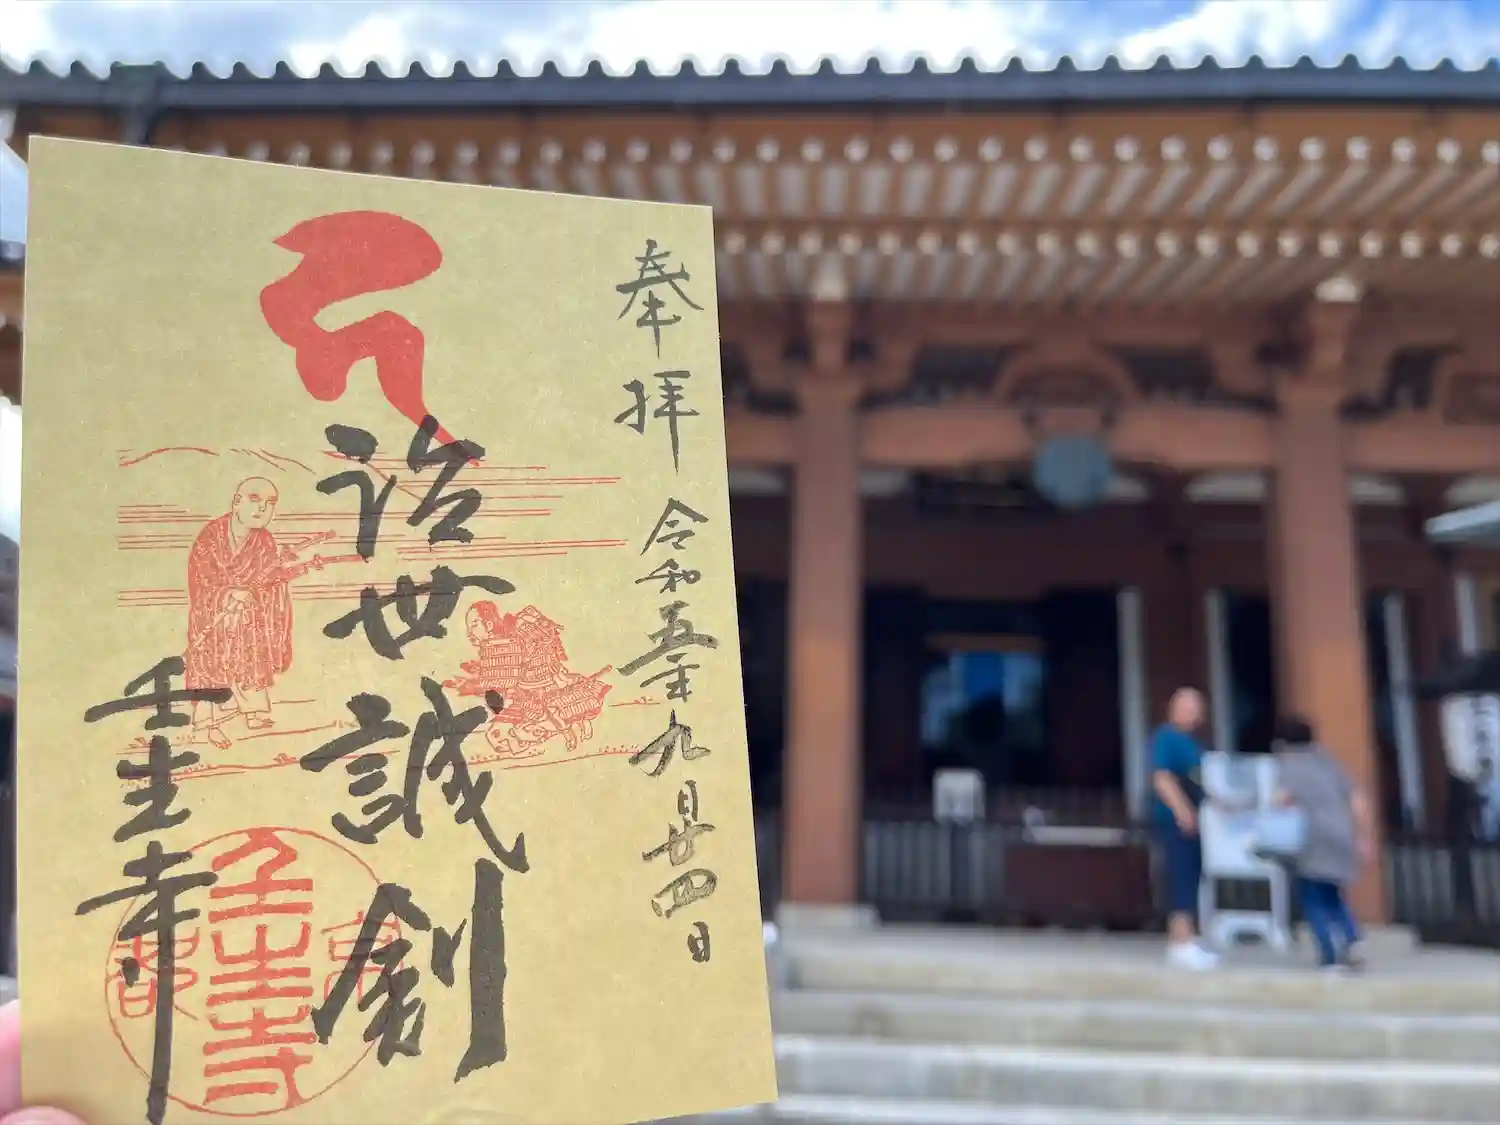 奉拝
令和五年九月廿四日
治世誠剣
壬生寺
京都
壬生寺